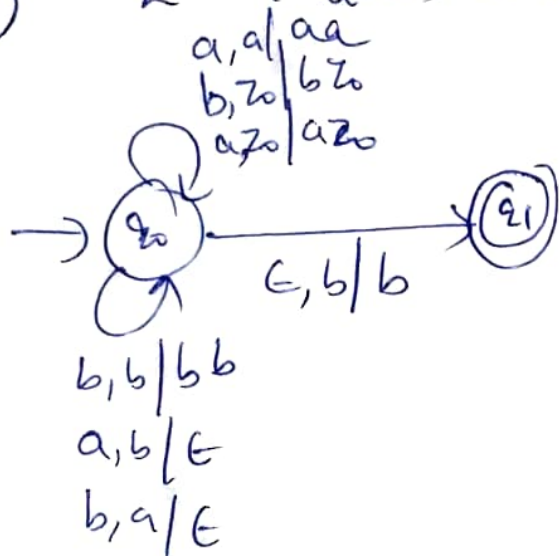 a,a/aa
b,z₀/bz₀
a,z₀/az₀
q₀
q₁
ϵ,b/b
b,b/bb
a,b/ϵ
b,a/ϵ